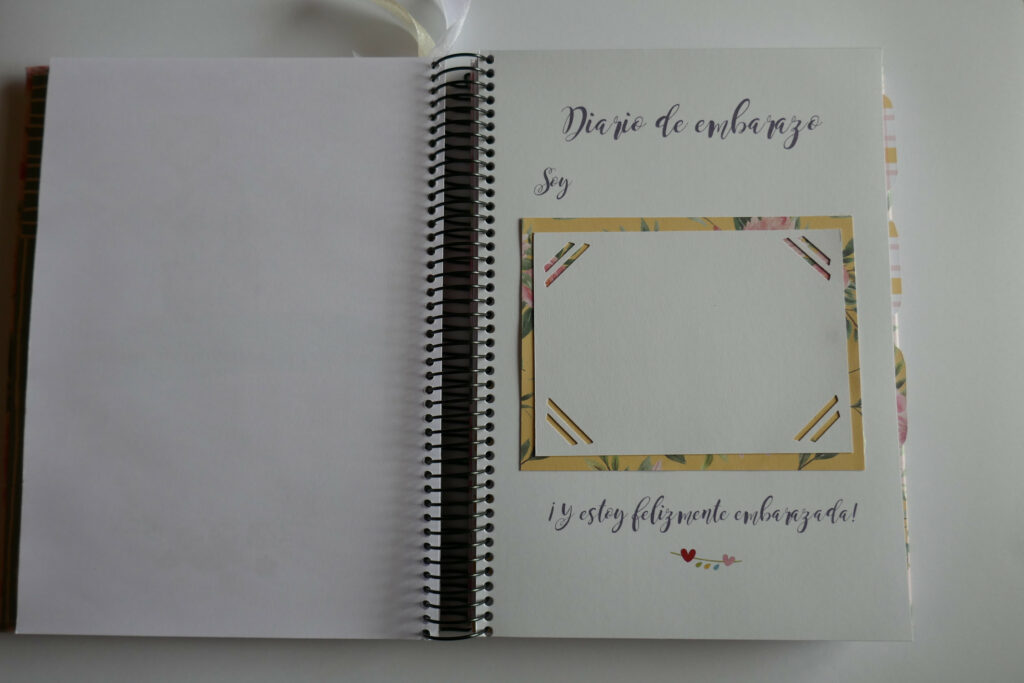 Diario de embarazo
Soy
¡Y estoy felizmente embarazada!